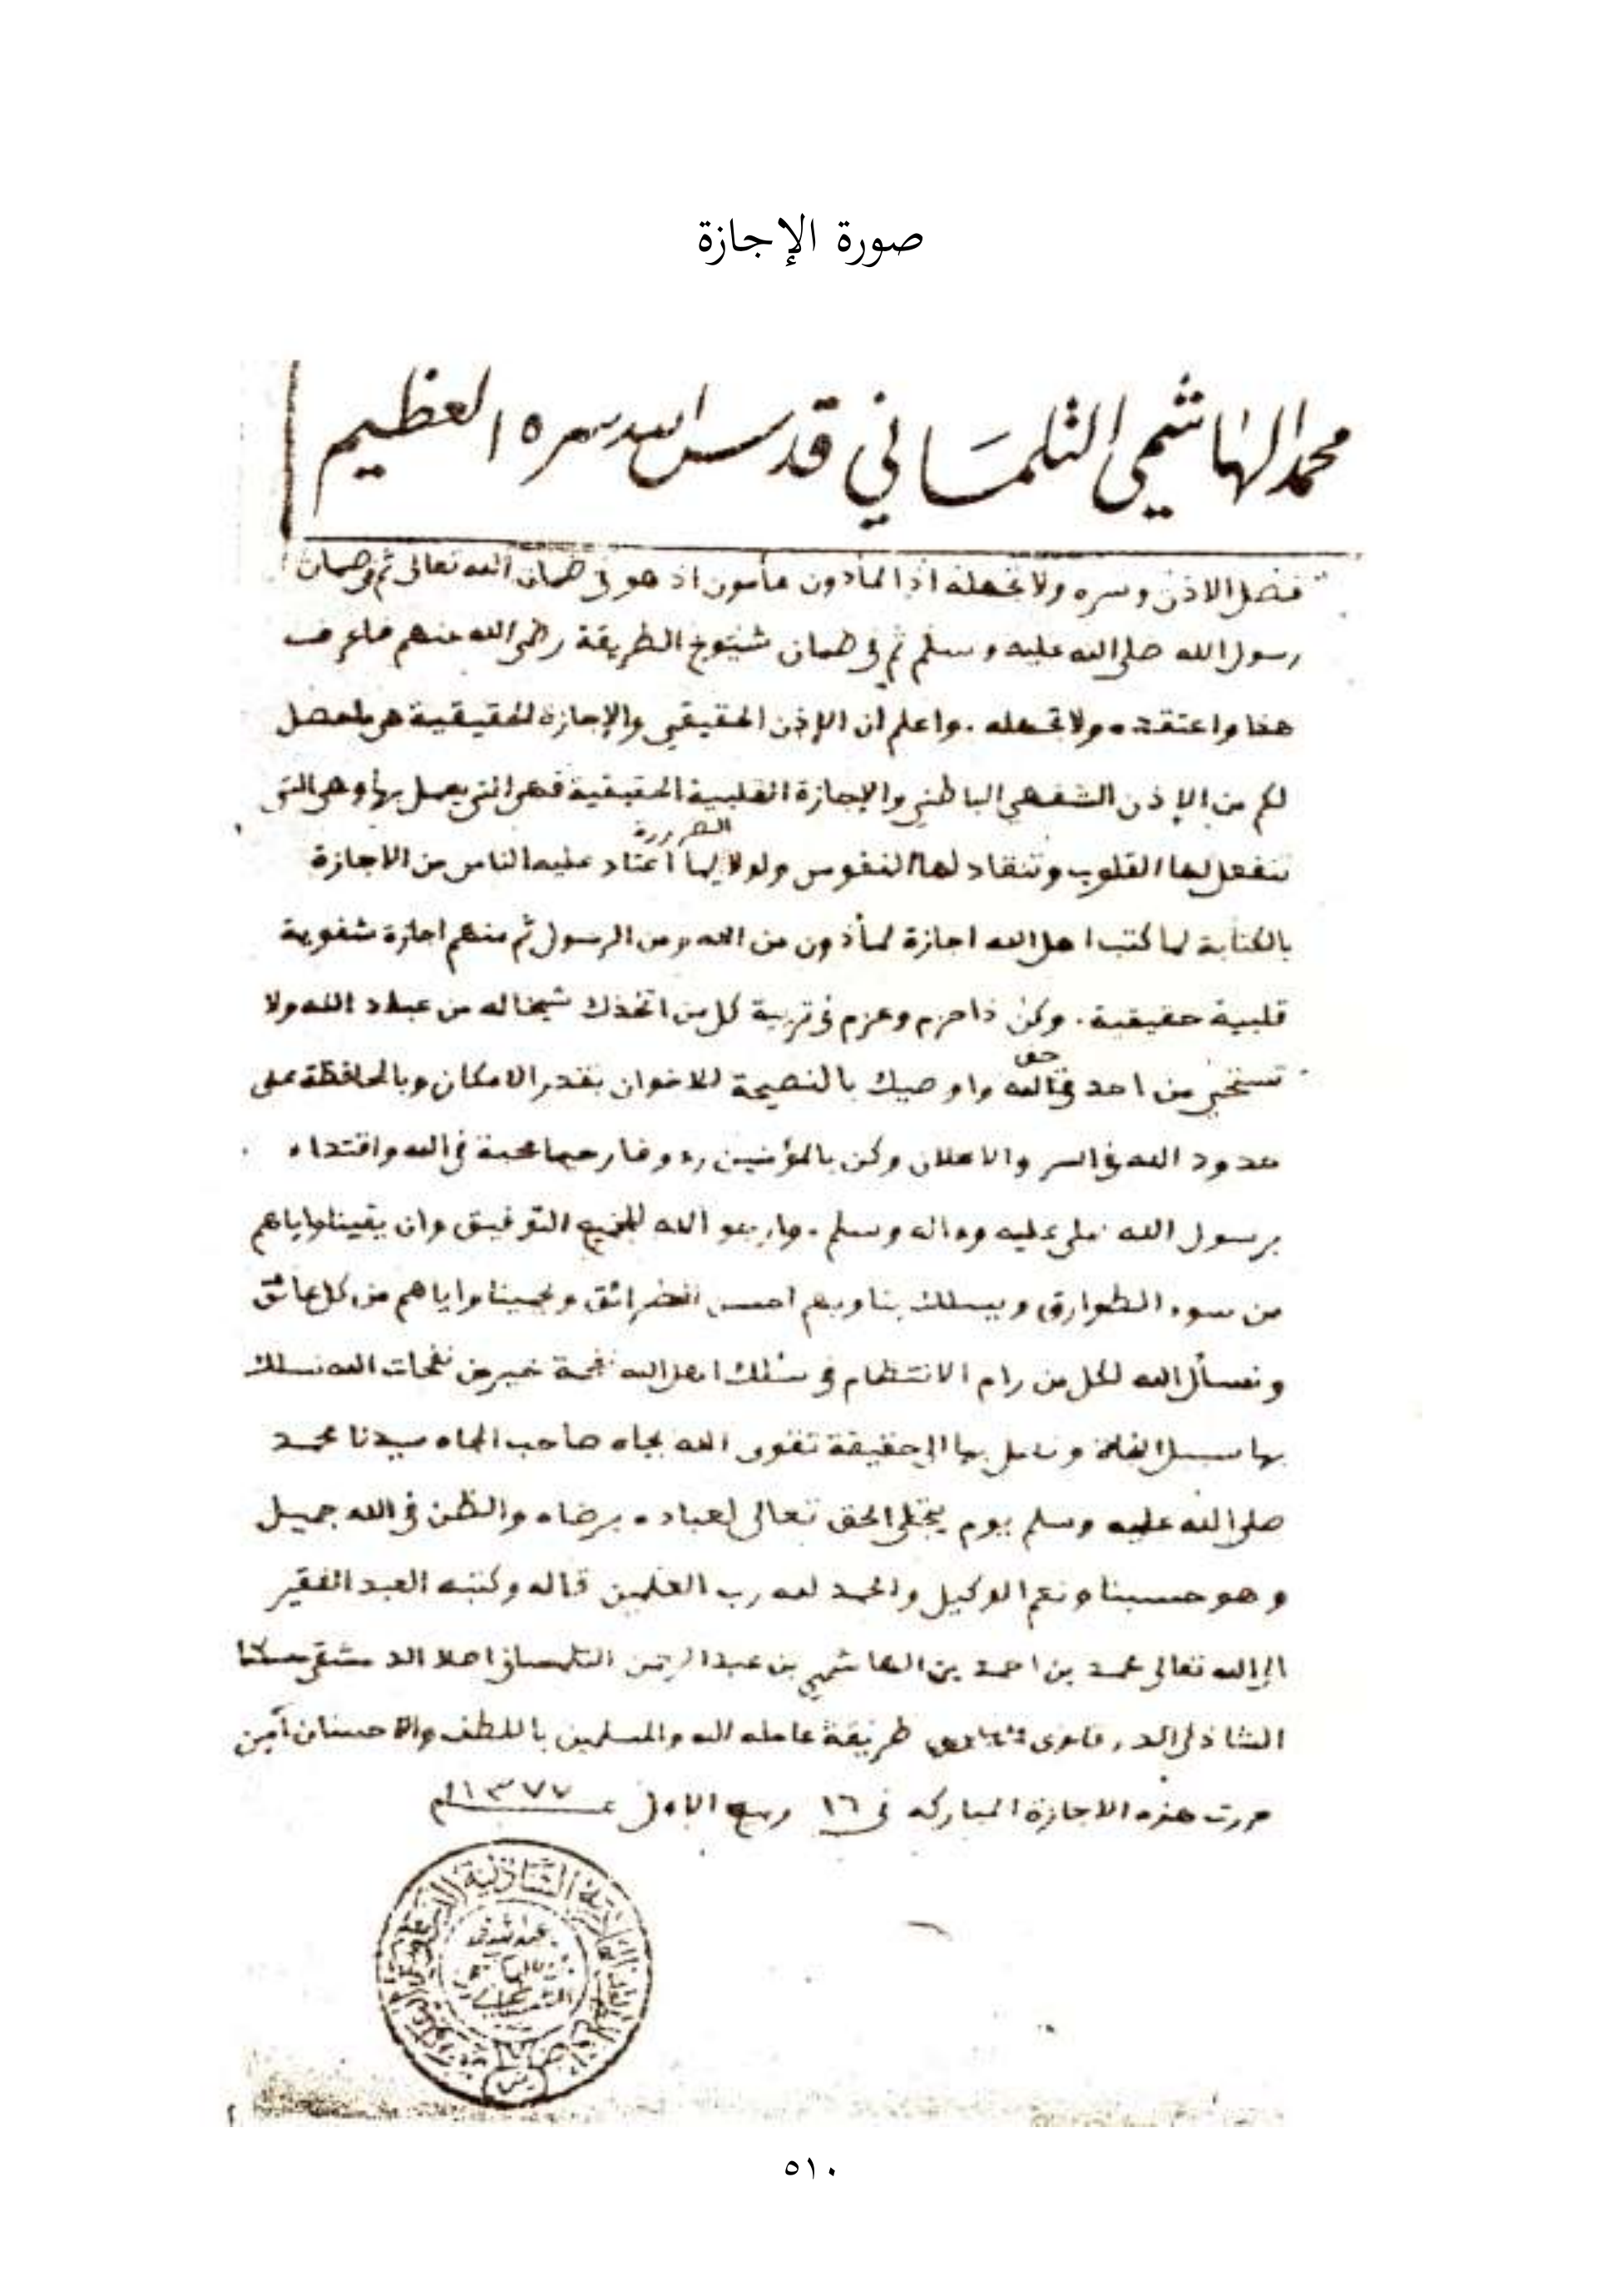 صورة الإجازة
محمد الهاشمي التلمساني قدس الله سره العظيم
فضل الاذن وسره ولا تجهله اذ المأذون مأمون اذ هو في ضمان الله تعالى ثم في ضمان
رسول الله صلى الله عليه وسلم ثم في ضمان شيوخ الطريقة رضي الله عنهم فاعرف
هذا واعتقده ولا تجهله . واعلم ان الإذن الحقيقي والإجازة الحقيقية هي ما حصل
لكم من الإذن الشفهي الباطني والإجازة القلبية الحقيقية فهي التي يعمل بها وهي التي
تنفعل لها القلوب وتنقاد لها النفوس ولولا الضرورة لما اعتاد عليه الناس من الاجازة
بالكتابة لما كتب اهل الله اجازة لمأذون من الله ومن الرسول ثم منهم اجازة شفوية
قلبية حقيقية . وكن ذا حزم وعزم في تربية كل من اتخذك شيخا له من عباد الله ولا
تستحي من احد في حق الله واوصيك بالنصيحة للاخوان بقدر الامكان وبالمحافظة على
حدود الله في السر والاعلان وكن بالمؤمنين رءوفا رحيما محبة في الله واقتداء
برسول الله صلى عليه وءاله وسلم . وارجو الله للجميع التوفيق وان يقينا واياهم
من سوء الطوارق ويسلك بنا وبهم احسن الطرائق ويحمينا واياهم من كل عائق
ونسأل الله لكل من رام الانتظام في سلك اهل الله نفحة خير من نفحات الله نسلك
بها سبيل ونصل بها الى حقيقة تقوى الله بجاه صاحب الجاه سيدنا محمد
صلى الله عليه وسلم يوم يتجلى الحق تعالى لعباده برضاه والظن في الله جميل
وهو حسبنا ونعم الوكيل والحمد لله رب العلمين قاله وكتبه العبد الفقير
الى الله تعالى محمد بن احمد بن الهاشمي بن عبد الرحمن التلمساني اصلا الدمشقي مسكنا
الشاذلي الدرقاوي طريقة عامله الله والمسلمين باللطف والاحسان آمين
حررت هذه الاجازة المباركة في ١٦ ربيع الاول ١٣٧٧
٥١٠